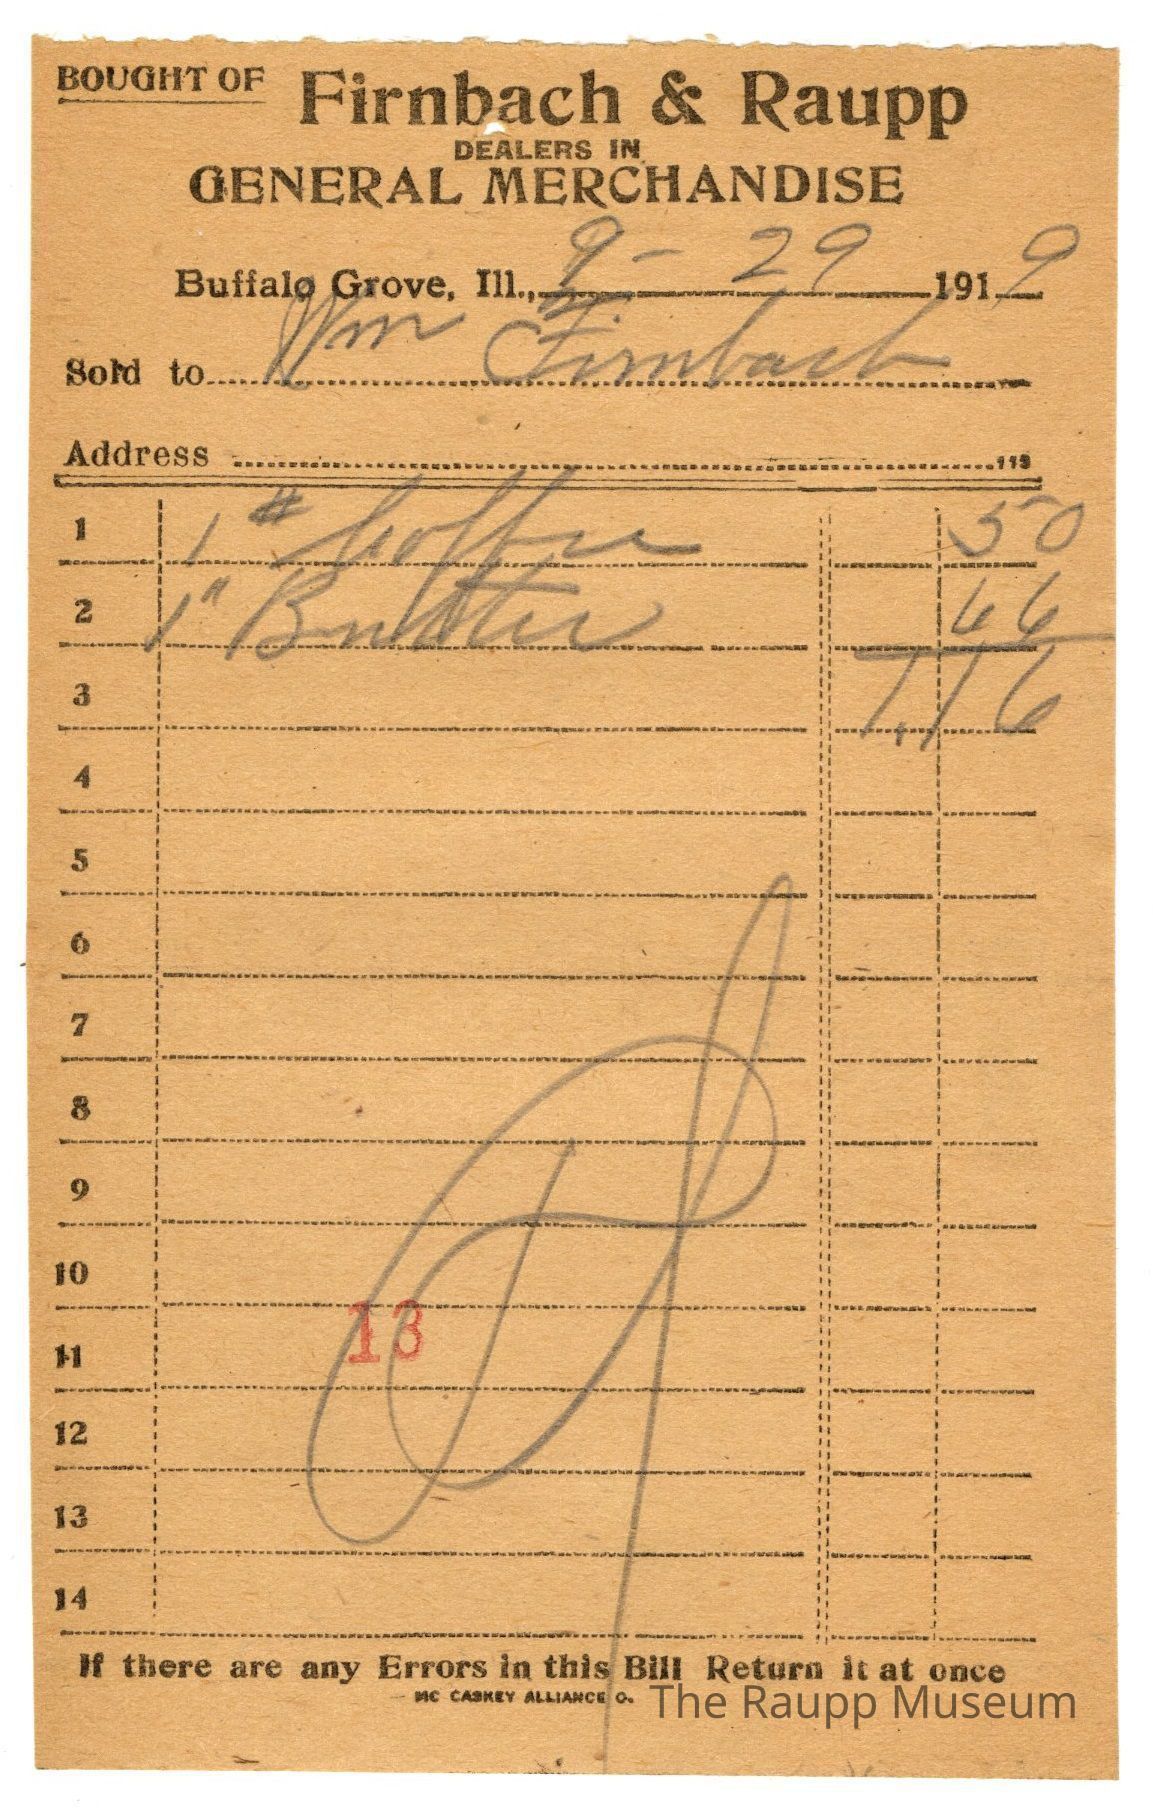 BOUGHT OF Firnbach & Raupp
DEALERS IN
GENERAL MERCHANDISE
Buffalo Grove, Ill., 9-29 1919
Sold to Wm Firnbach
Address 113
1 1# Coffee 50
2 1" Butter 66
3 1.16
4
5
6
7
8
9
10
13
11
12
13
14
If there are any Errors in this Bill Return it at once
MC CASKEY ALLIANCE O.
The Raupp Museum